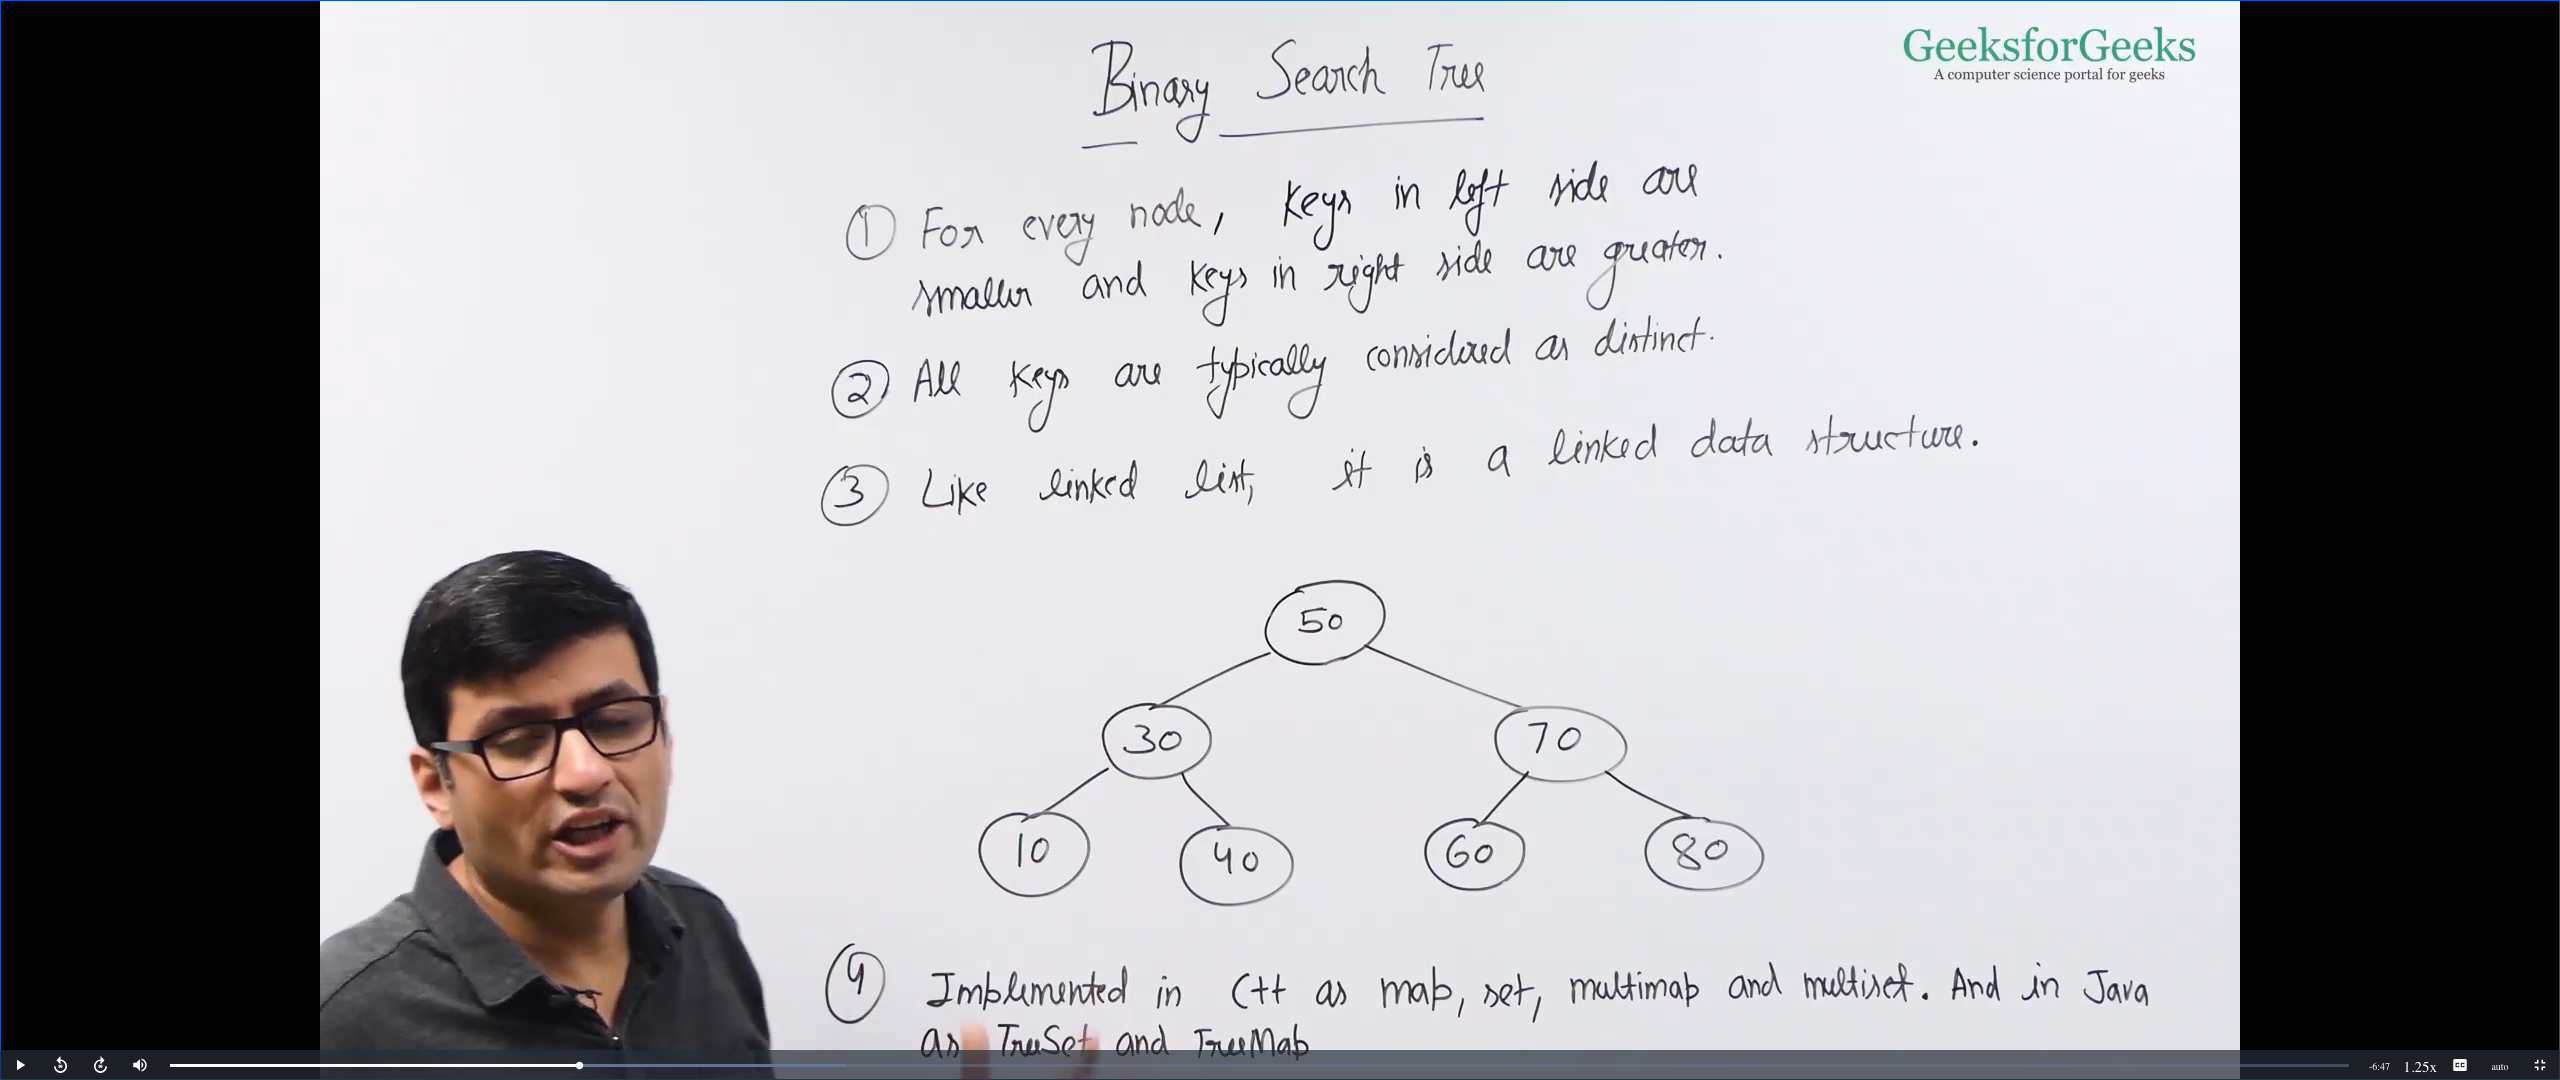 GeeksforGeeks
A computer science portal for geeks
Binary Search Tree
① For every node, keys in left side are
smaller and keys in right side are greater.
② All keys are typically considered as distinct.
③ Like linked list, it is a linked data structure.
50
30
70
10
40
60
80
④ Implemented in C++ as map, set, multimap and multiset. And in Java
as TreeSet and TreeMap
-6:47
1.25x
CC
auto